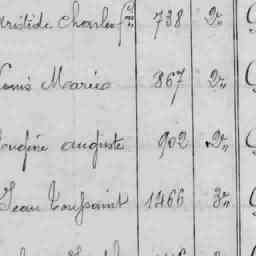 Aristide Charles 738 2e
Louis Marie 867 2e
Eugène Auguste 902 2e
Jean Toussaint 1466 3e